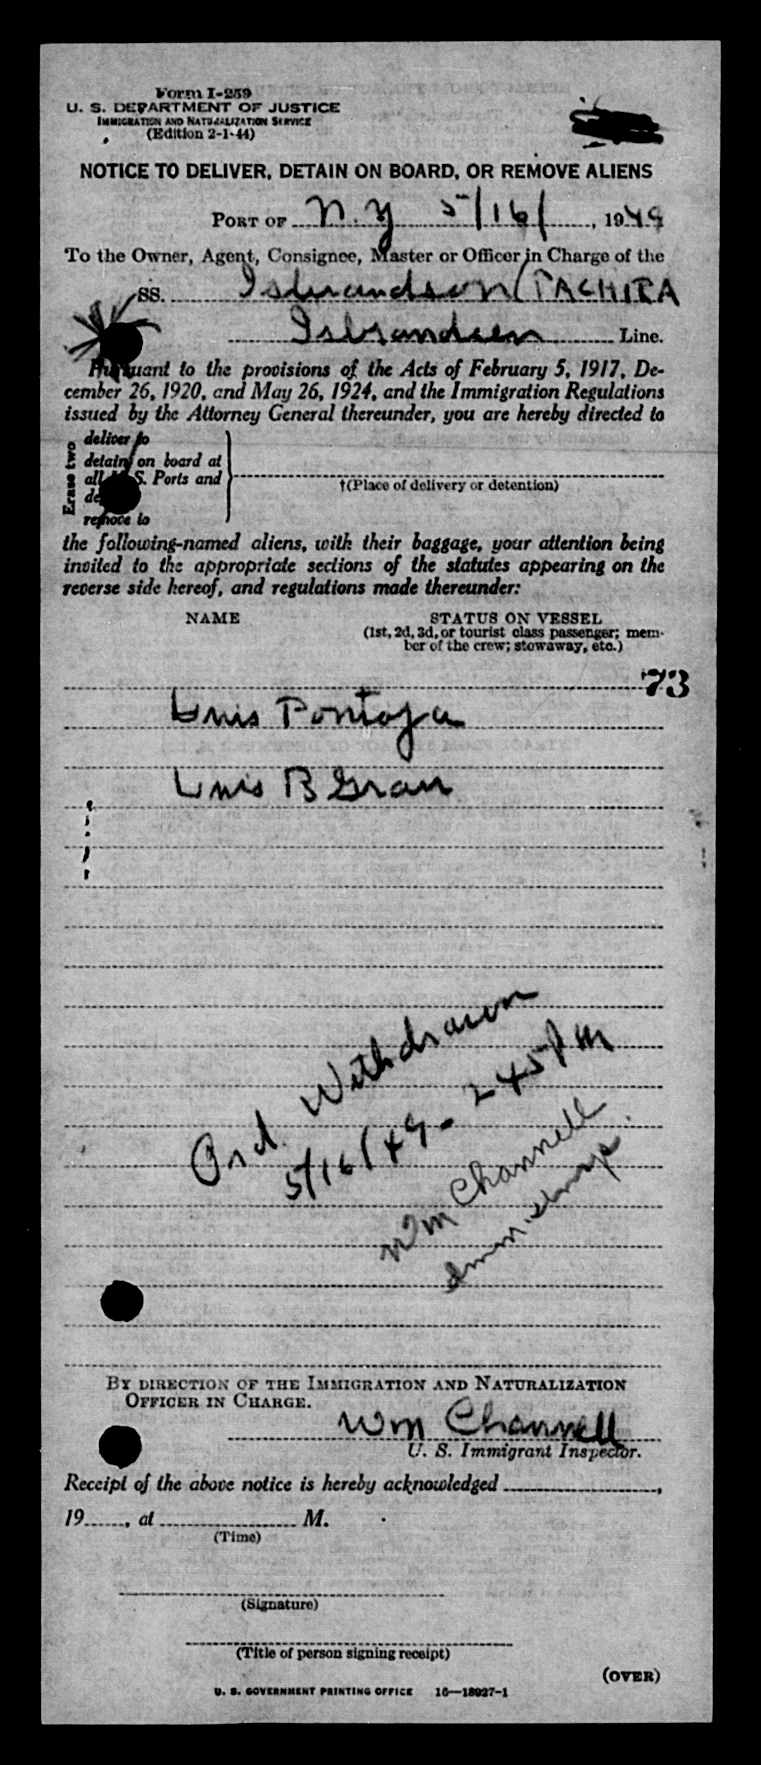 Form I-259
U. S. DEPARTMENT OF JUSTICE
IMMIGRATION AND NATURALIZATION SERVICE
(Edition 2-1-44)
NOTICE TO DELIVER, DETAIN ON BOARD, OR REMOVE ALIENS
PORT OF N.Y 5/16/, 1949
To the Owner, Agent, Consignee, Master or Officer in Charge of the
SS. Isbrandsen (TACHIRA
Isbrandsen Line.
Pursuant to the provisions of the Acts of February 5, 1917, De-
cember 26, 1920, and May 26, 1924, and the Immigration Regulations
issued by the Attorney General thereunder, you are hereby directed to
Erase two
deliver to
detain on board at
all U. S. Ports and
remove to
†(Place of delivery or detention)
the following-named aliens, with their baggage, your attention being
invited to the appropriate sections of the statutes appearing on the
reverse side hereof, and regulations made thereunder:
NAME STATUS ON VESSEL
(1st, 2d, 3d, or tourist class passenger; mem-
ber of the crew; stowaway, etc.)
73
Luis Pontoja
Luis B Gran
Ord. Withdrawn
5/16/49 - 245 PM
Wm Channell
Imm. Insp.
BY DIRECTION OF THE IMMIGRATION AND NATURALIZATION
OFFICER IN CHARGE.
Wm Channell
U. S. Immigrant Inspector.
Receipt of the above notice is hereby acknowledged ,
19 , at M.
(Time)
(Signature)
(Title of person signing receipt)
(OVER)
U. S. GOVERNMENT PRINTING OFFICE 16—18927-1